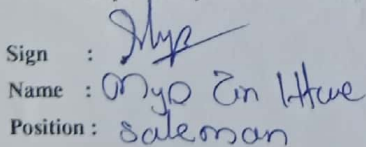 Sign :
Name : Myo Zin Htwe
Position : Salesman